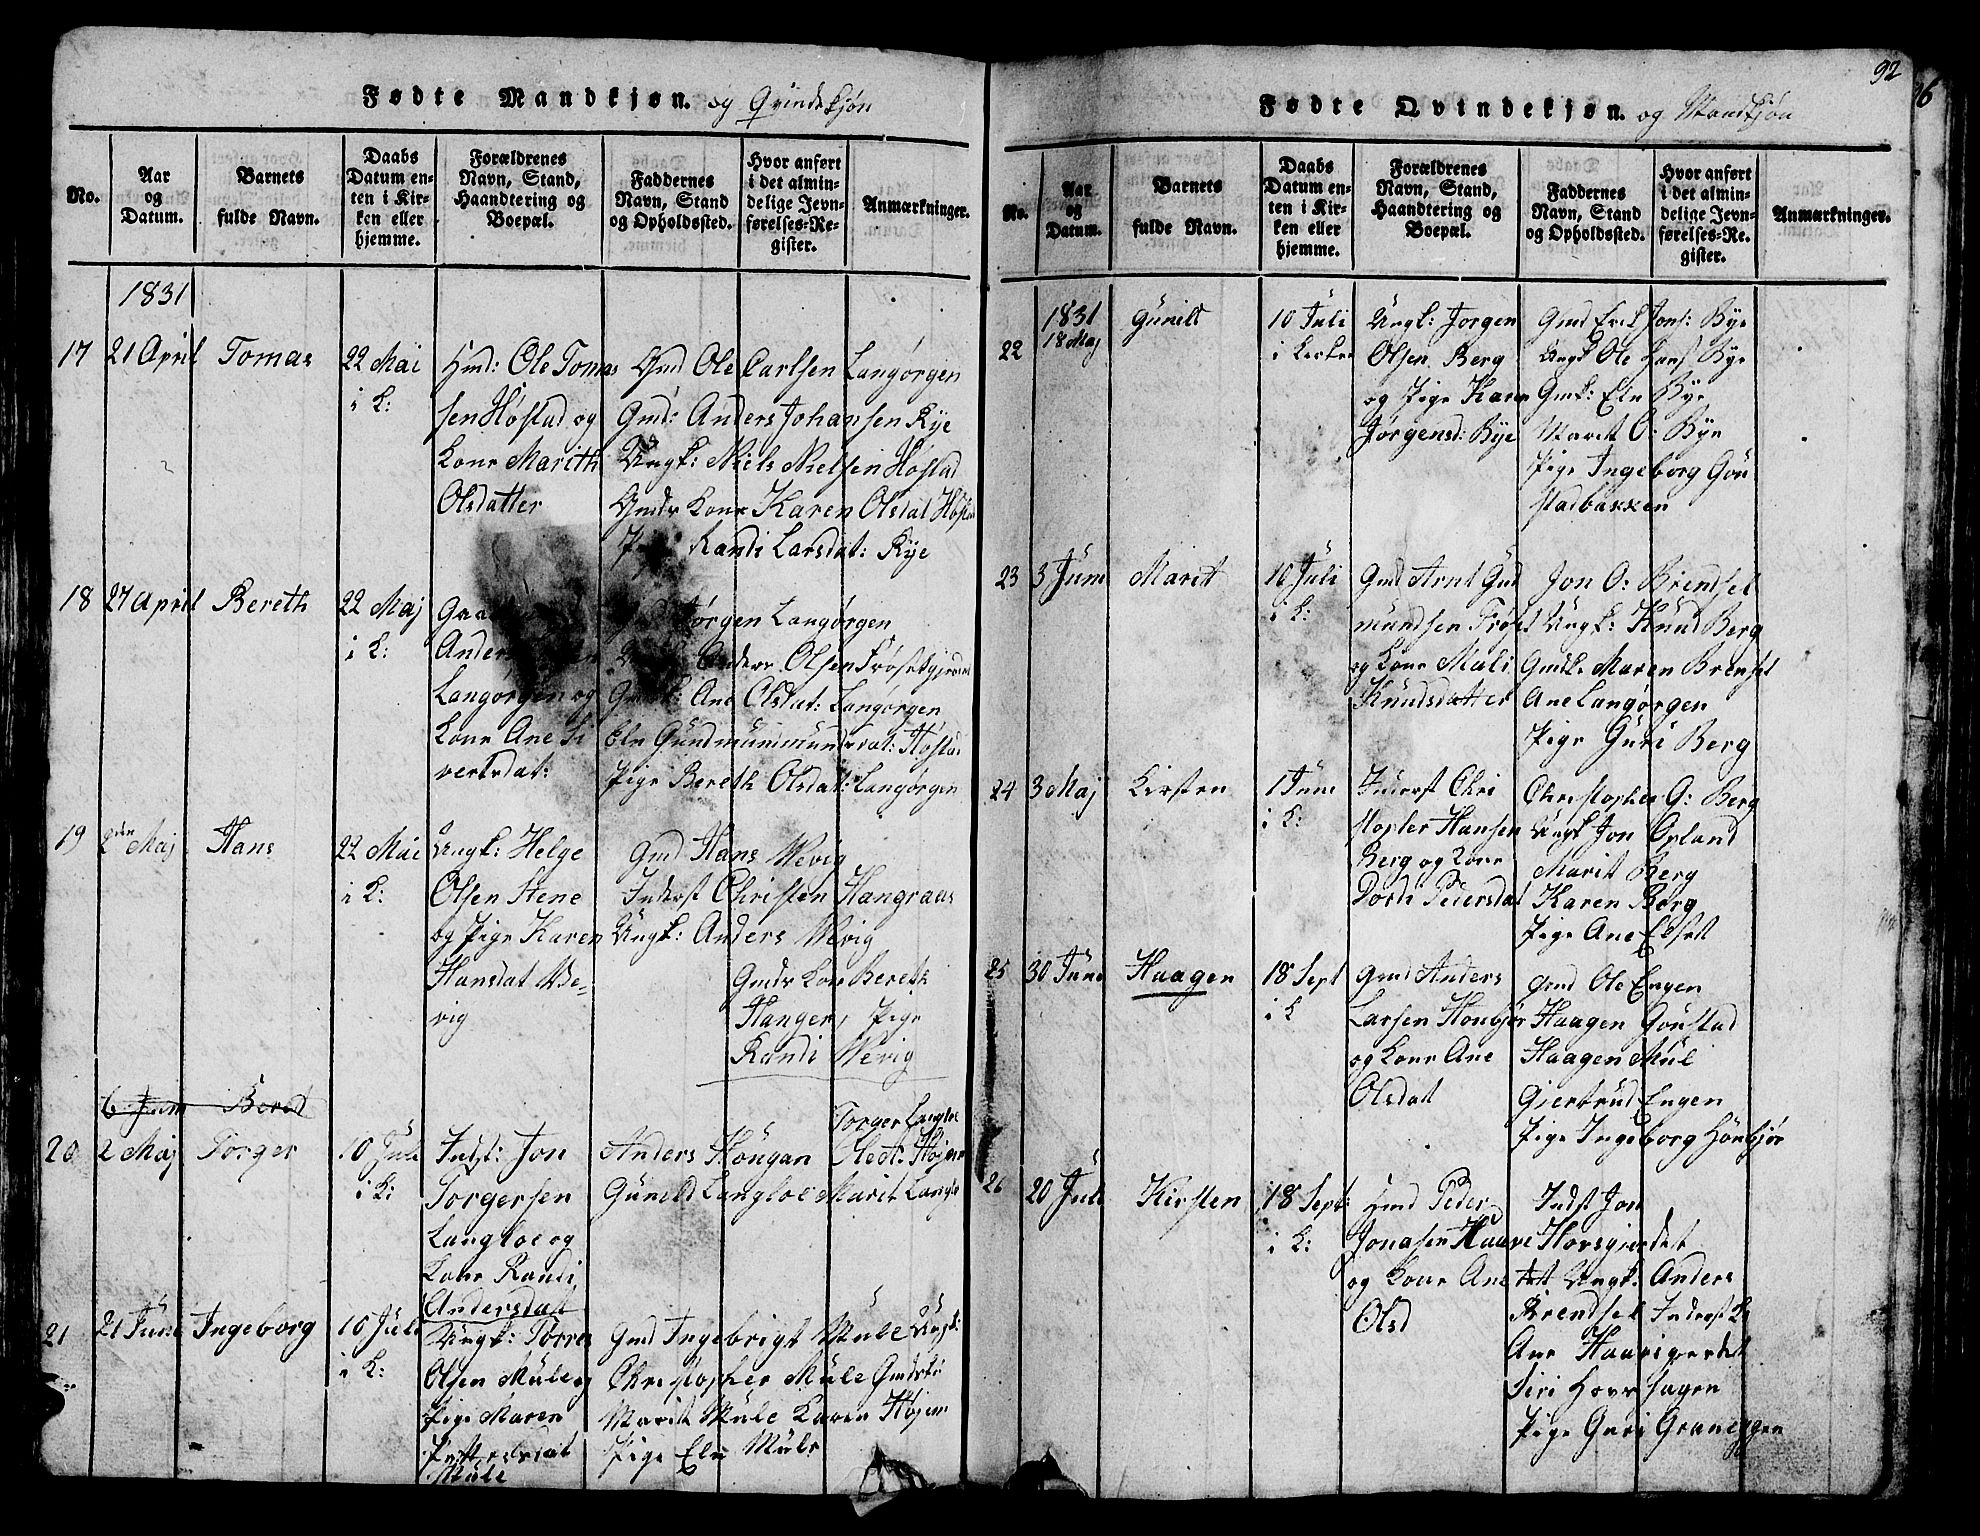 92
Fødte Mandkjøn. og Qvindekjøn
No.
Aar og Datum.
Barnets fulde Navn.
Daabs Datum enten i Kirken eller hjemme.
Forældrenes Navn, Stand, Haandtering og Boepæl.
Faddernes Navn, Stand og Opholdssted.
Hvor anført i det almindelige Jevnførelses-Register.
Anmærkninger.
1831
17 21 April Tomas
22 Mai
i K:
Hmd: Ole Tomas
sen Høstad og
Kone Marith
Olsdatter
Gmd Ole Carlsen Langørgen
Gmd: Anders Johansen Kye
Ungk: Niels Nielsen Høstad
Gmds Kone Karen Olsdat Høstad
Randi Larsdat: Kye
18 27 April Bereth
22 Maj
i K:
Anders
Langørgen og
Kone Ane Si
vertsdat:
Jørgen Langørgen
Anders Olsen Frøsetgjerdet
Gmdk: Ane Olsdat: Langørgen
Pige Bereth Olsdat: Langørgen
19 2den Maj Hans
22 Mai
i K:
Ungk: Helge
Olsen Stene
og Pige Karen
Hansdat We-
vig
Gmd Hans Wevig
Inderst Christen Hangraas
Ungk: Anders Wevig
Gmds Kone Bereth
Hangen, Pige
Randi Wevig
6 Juni Bered
20 2 Maj Torger
10 Juli
i K:
Indst: Jon
Torgersen
Langloe og
Kone Randi
Andersdat
Torger Langloe
Anders Skougan Ole A: Højem
Guneld Langloe Marit Langlo
21 21 Juni Ingeborg
10 Juli
i K:
Ungk: Torres
Olsen Mule og
Pige Maren
Pettersdat
Mule
Gmd Ingebrigt Mule Ungk:
Christopher Mule Gmdsk:
Marit Mule Karen Højem
Pige Eln Mule
Fødte Qvindekjøn. og Mandkjøn
No.
Aar og Datum.
Barnets fulde Navn.
Daabs Datum enten i Kirken eller hjemme.
Forældrenes Navn, Stand, Haandtering og Boepæl.
Faddernes Navn, Stand og Opholdssted.
Hvor anført i det almindelige Jevnførelses-Register.
Anmærkninger.
1831
22 18 Maj Gunild
10 Juli
i Kirken
Ungk: Jorgen
Olsen Berg
og Pige Karen
Jørgensd: Bye
Gmd Erik Jons: Bye
Ungk Ole Hans: Bye
Gmk: Eln Bye
Marit O: Bye
Pige Ingeborg Gou
stadbakken
23 3 Juni Marit
10 Juli
i K:
Gmd Arnt Gud
mundsen Frøset
og Kone Mali
Knudsdatter
Jon O: Brendsel
Ungk: Knud Berg
Gmdk: Maren Brensel
Ane Langørgen
Pige Guri Berg
24 3 Maj Kirsten
1 Juni
i K:
Inderst Chri
stopler Hansen
Berg og Kone
Dorth Pedersdat
Christopher G: Berg
Ungk Jon Opland
Marit Berg
Karen Berg
Pige Ane Elset
25 30 Juni Haagen
18 Sept
i K
Gmd Anders
Larsen Honbjør
og Kone Ane
Olsdat
Gmd Ole Engen
Haagen Goustad
Haagen Mul
Giertrud Engen
Pige Ingeborg Honbjør
26 20 Juli Kirsten
18 Sept:
i K:
Hmd Peder
Jonasen Haave
og Kone Ane
Olsd
Indst Jon
Horsgierdet
Ungk: Anders
Brendsel Inderst K
Ane Haavigerdet
Siri Horr hagen
Pige Guri Graneggen